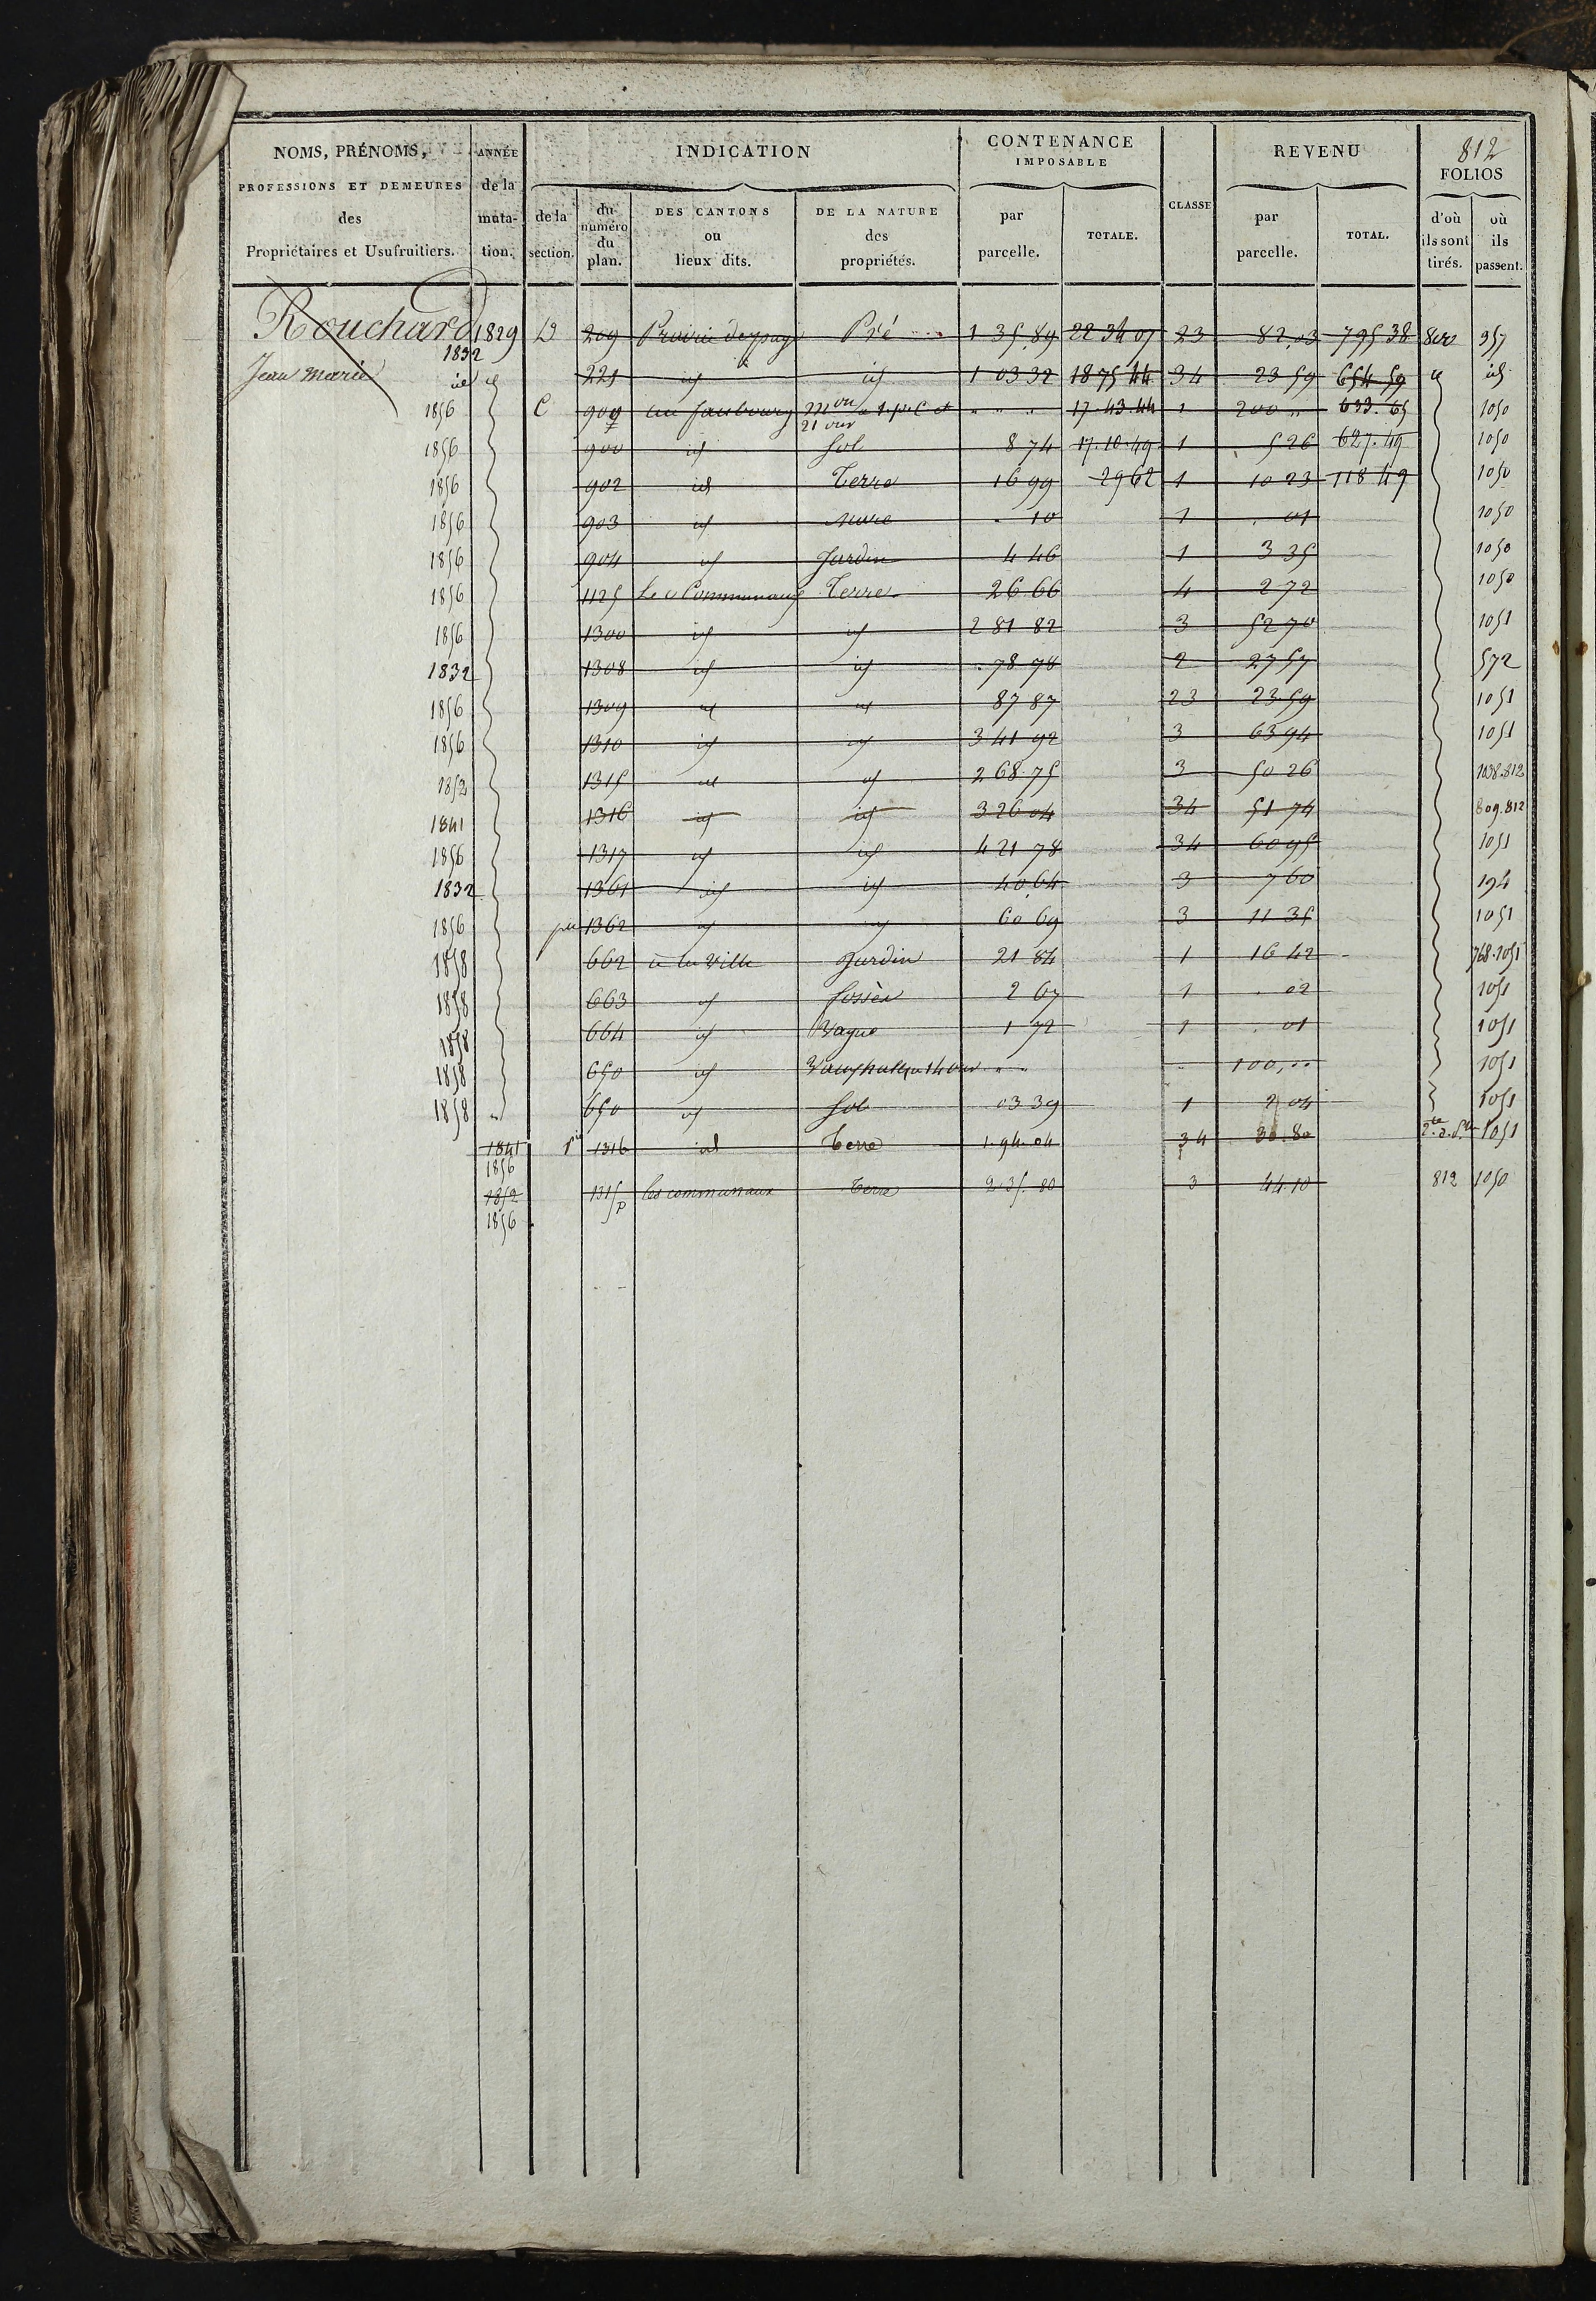 812
NOMS, PRÉNOMS, PROFESSIONS ET DEMEURES des Propriétaires et Usufruitiers.
ANNÉE de la muta- tion.
INDICATION
de la section.
du numéro du plan.
DES CANTONS ou lieux dits.
DE LA NATURE des propriétés.
CONTENANCE IMPOSABLE
par parcelle.
TOTALE.
CLASSE
REVENU
par parcelle.
TOTAL.
FOLIOS
d'où ils sont tirés.
où ils passent.
Rouchard 1829 D 209 Pré 1 35 89 22 34 07 23 82 03 795 38 957
Jean Marie 1832 id 221 id id 1 03 32 18 75 44 34 23 59 654 59 id id
1856 C 909 au faubourg 21 ouv 17.43.44 1 200 " 633.65 1050
1856 900 id Sol 8 74 17.10.49 1 5 26 627.49 1050
1856 902 id Terre 16 99 29 62 1 10 23 118 49 1050
1856 903 id Mare 10 1 01 1050
1856 904 id Jardin 4 46 1 3 35 1050
1856 1125 Les Communaux Terre 26 66 4 2 72 1050
1856 1300 id id 2 81 82 3 52 70 1051
1832 1308 id id 78 78 2 27 57 572
1856 1309 id id 87 87 23 23 59 1051
1856 1310 id id 3 41 92 3 63 94 1051
1852 1315 id id 2 68 75 3 50 26 1038.812
1841 1316 id id 3 26 04 34 51 74 809.812
1856 1317 id id 4 21 78 34 60 95 1051
1832 1361 id id 40 64 3 7 60 194
1856 1362 id id 60 69 3 11 35 1051
1858 662 à la Ville Jardin 21 84 1 16 42 768.1051
1858 663 id fossés 2 67 1 02 1051
1858 664 id Vague 1 72 1 01 1051
1858 650 id 100 1051
1858 650 id Sol 03 39 1 2 04 1051
1841 1316 id Terre 1.94.04 34 30.80 1051
1856
1852 1315 p les communaux Terre 2.35.80 3 44.10 812 1050
1856